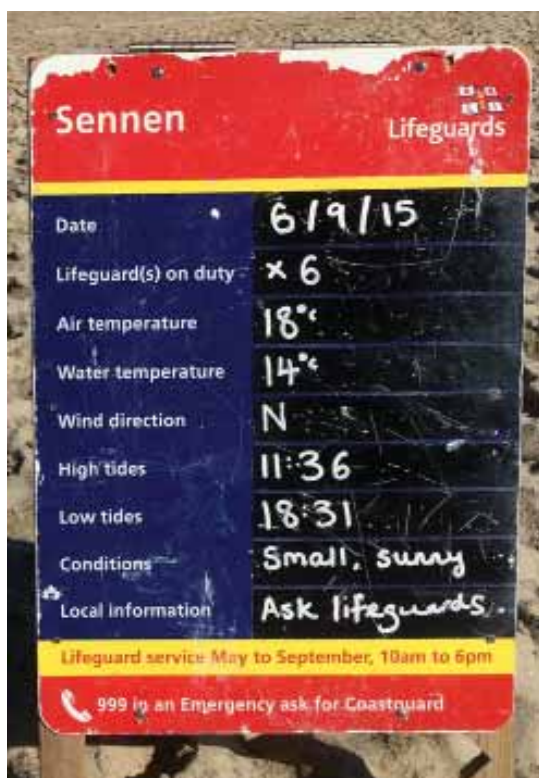 Sennen
Lifeguards
Date 6/9/15
Lifeguard(s) on duty x 6
Air temperature 18°c
Water temperature 14°c
Wind direction N
High tides 11:36
Low tides 18:31
Conditions Small, sunny
Local information Ask lifeguards.
Lifeguard service May to September, 10am to 6pm
999 in an Emergency ask for Coastguard